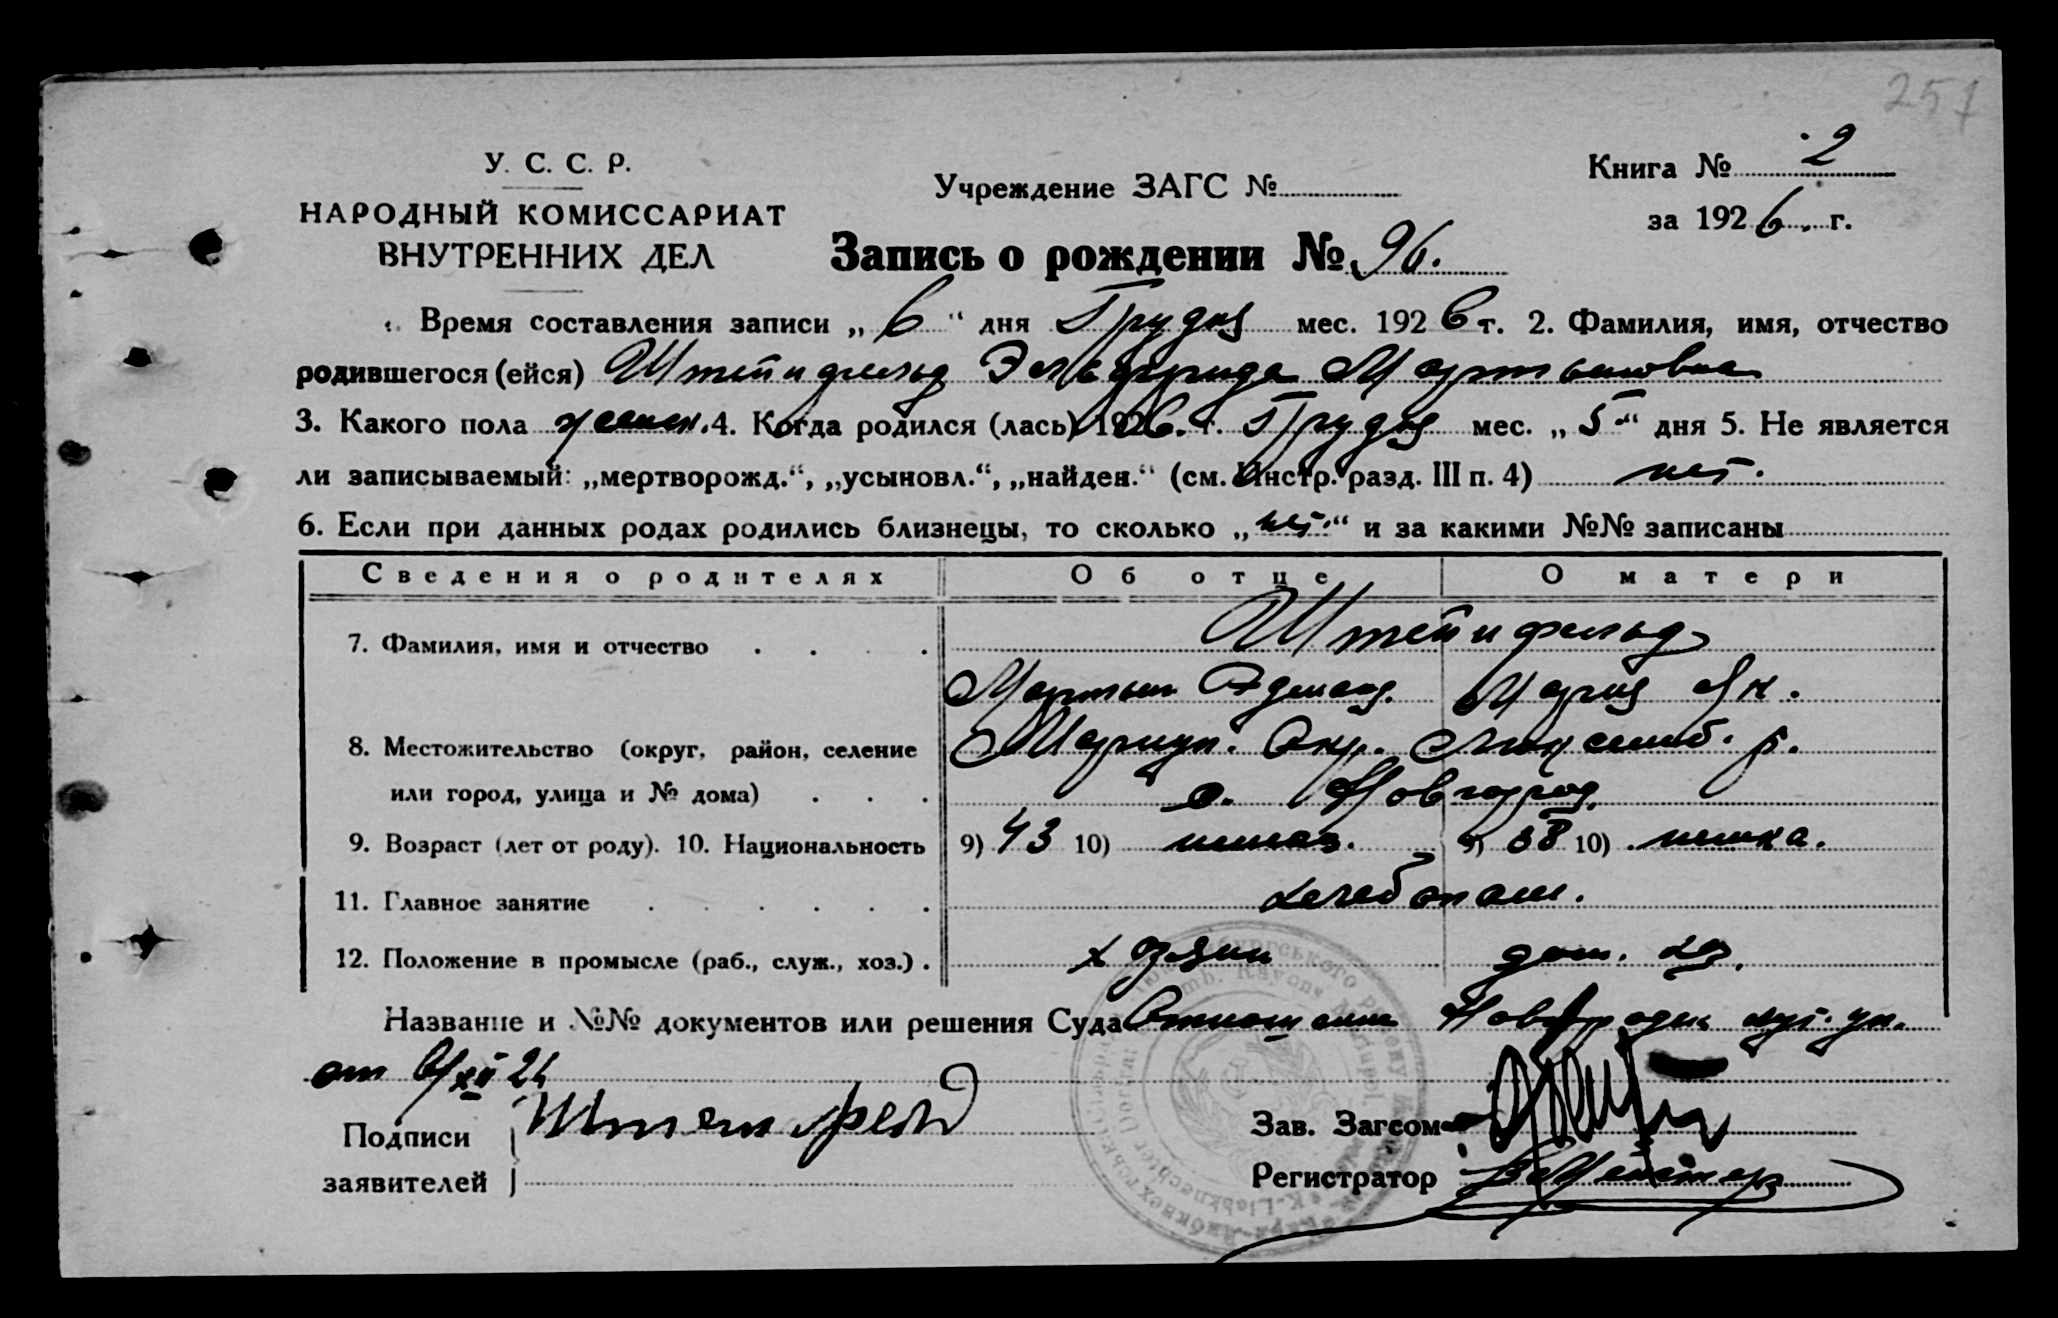 251
У. С. С. Р.
НАРОДНЫЙ КОМИССАРИАТ
ВНУТРЕННИХ ДЕЛ
Учреждение ЗАГС №
Книга № 2
за 1926 г.
Запись о рождении № 96.
Время составления записи „6“ дня Грудня мес. 1926 г. 2. Фамилия, имя, отчество
родившегося (ейся) Штейнфельд Эльфрида Мартыновна
3. Какого пола женск. 4. Когда родился (лась) 1926. г. Грудня мес. „5“ дня 5. Не является
ли записываемый: „мертворожд.“, „усыновл.“, „найден.“ (см. Инстр. разд. III п. 4) нет.
6. Если при данных родах родились близнецы, то сколько „нет.“ и за какими №№ записаны
Сведения о родителях Об отце О матери
7. Фамилия, имя и отчество Штейнфельд
Мартын Мария Як.
8. Местожительство (округ, район, селение Мариуп. Окр. р.
или город, улица и № дома) с. Новгород.
9. Возраст (лет от роду). 10. Национальность 9) 43 10) 9) 38 10) немка.
11. Главное занятие хлебопаш.
12. Положение в промысле (раб., служ., хоз.) хозяин дом. хоз.
Название и №№ документов или решения Суда Отношение
от 6/XII 26
Подписи заявителей Штейнфельд
Зав. Загсом
Регистратор